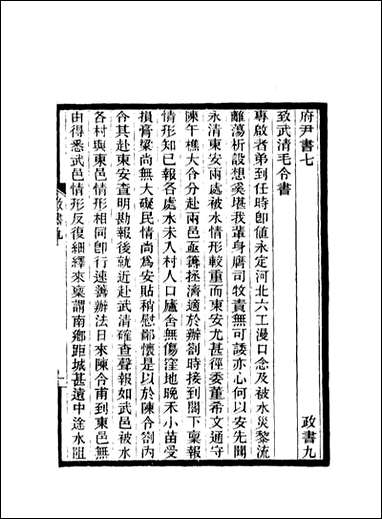 府尹書七　政書九
致武清毛令書
專啟者弟到任時卽値永定河北六工漫口念及被水災黎流
離蕩析設想奚堪我輩身膺司牧責無可諉亦心何以安先聞
永清東安兩處被水情形較重而東安尤甚徑委董希文通守
陳午樵大令分赴兩邑亟籌拯濟適於辦劄時接到閣下稟報
情形知已報各處水未入村人口廬舍無傷窪地晚禾小苗受
損膏粱尚無大礙民情尚爲安貼稍慰鄙懷是以於陳令劄內
令其赴東安查明勘報後就近赴武清確查聲報如武邑被水
各村與東邑情形相同卽行速籌辦法日來陳令甫到東邑無
由得悉武邑情形反復細繹來稟謂南鄉距城甚遠中途水阻